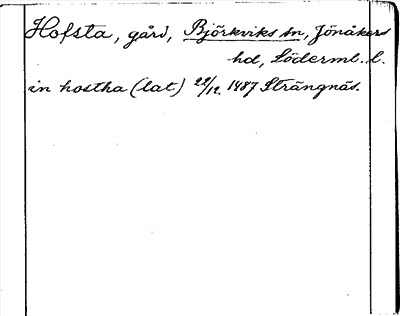 Hofsta, gård, Björkviks sn, Jönåkers
hd, Söderml. l.
in hostha (lat) 22/12. 1487 Strängnäs.